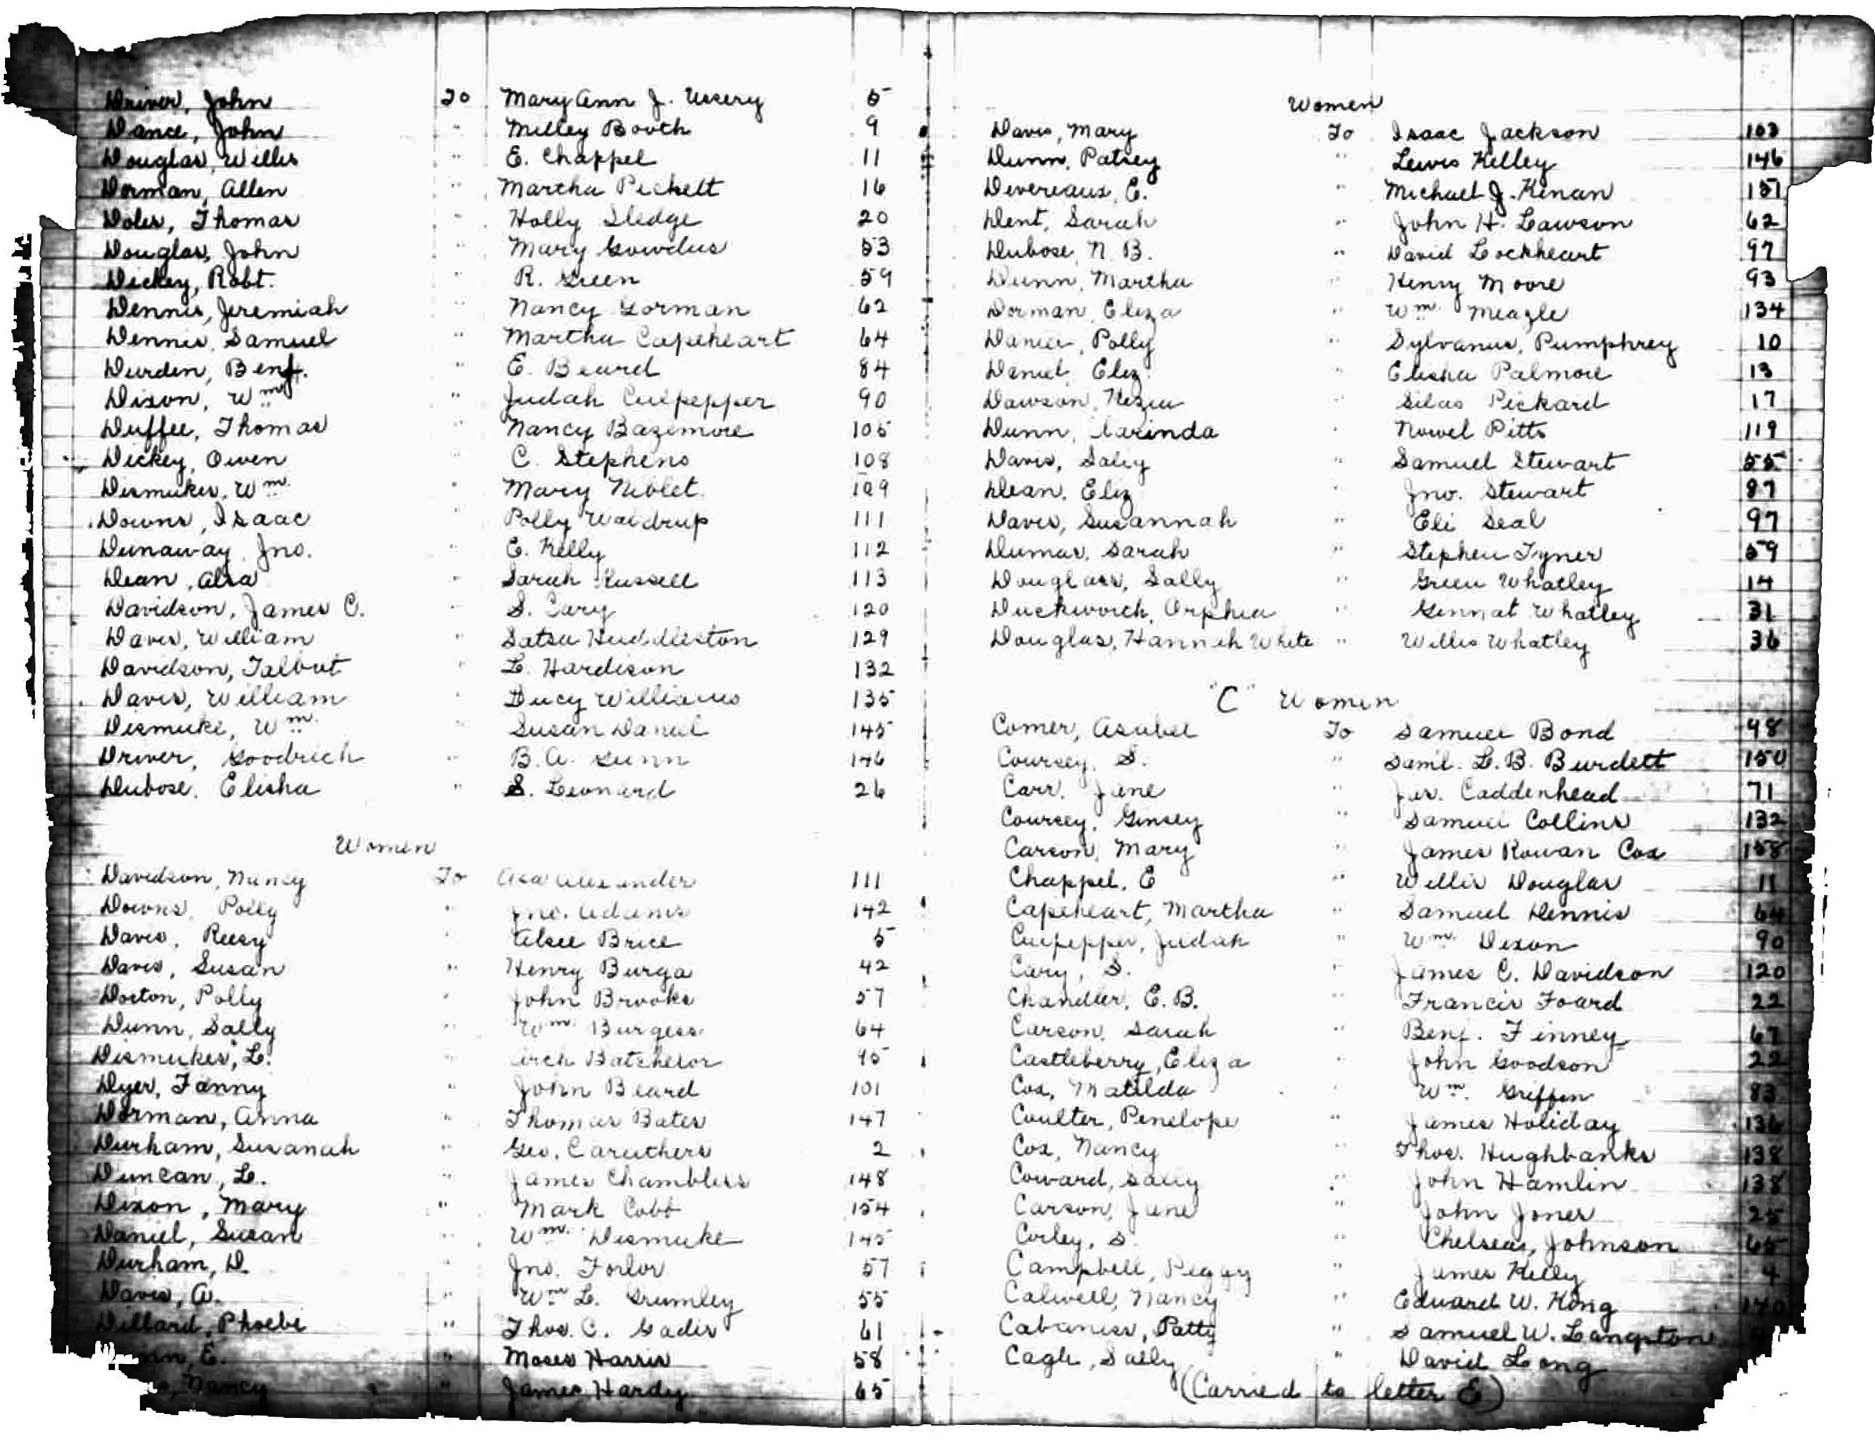 Driver, John To Mary Ann J. Ussery 5
Dance, John " Milley Booth 9
Douglas, Willis " E. Chappel 11
Dorman, Allen " Martha Pickett 16
Doles, Thomas " Holly Sledge 20
Douglas, John " Mary Gowdus 53
Dickey, Robt. " R. Green 59
Dennis, Jeremiah " Nancy Gorman 62
Dennis, Samuel " Martha Capeheart 64
Durden, Benj. " E. Beard 84
Dixon, Wm. " Judah Culpepper 90
Duffee, Thomas " Nancy Bazemore 105
Dickey, Owen " C. Stephens 108
Dismukes, Wm. " Mary Niblet 109
Downs, Isaac " Polly Waldrup 111
Dunaway, Jno. " E. Kelly 112
Dean, Alsa " Sarah Russell 113
Davidson, James C. " S. Cary 120
Davis, William " Satsa Huddleston 129
Davidson, Talbut " L. Hardison 132
Davis, William " Ducy Williams 135
Dismuke, Wm. " Susan Daniel 145
Driver, Goodrich " B. A. Gunn 146
Dubose, Elisha " S. Leonard 26
Women
Davidson, Nancy To Asa Alexander 111
Downs, Polly " Jno. Adams 142
Davis, Reesy " Alsee Brice 5
Davis, Susan " Henry Burga 42
Docton, Polly " John Brooks 57
Dunn, Sally " Wm. Burgess 64
Dismukes, L. " Arch Batchelor 95
Dyer, Fanny " John Beard 101
Dorman, Anna " Thomas Bates 147
Durham, Susanah " Geo. Caruthers 2
Duncan, L. " James Chambless 148
Dixon, Mary " Mark Cobb 154
Daniel, Susan " Wm. Dismuke 145
Durham, D. " Jno. Forlor 57
Davis, A. " Wm. L. Grumley 55
Dillard, Phoebe " Thos. C. Gader 61
E. " Moses Harris 58
Nancy " James Hardy 65
Women
Davis, Mary To Isaac Jackson 103
Dunn, Patsey " Lewis Kelley 146
Devereaux, E. " Michael J. Kenan 151
Dent, Sarah " John H. Lawson 62
Dubose, N. B. " David Lockheart 97
Dunn, Martha " Henry Moore 93
Dorman, Eliza " Wm. Meazle 134
Daniel, Polly " Sylvanus, Pumphrey 10
Daniel, Eliz. " Elisha Palmore 13
Dawson, Kezia " Silas Pickard 17
Dunn, Clarinda " Nowel Pitts 119
Davis, Saley " Samuel Stewart 55
Dean, Eliz " Jno. Stewart 87
Davis, Susannah " Eli Seal 97
Dumas, Sarah " Stephen Tyner 59
Douglass, Sally " Green Whatley 14
Duckworth, Orphia " Gennat Whatley 31
Douglas, Hannah White " Willis Whatley 36
"C" Women
Comer, Asubel To Samuel Bond 98
Coursey, S. " Saml. L. B. Burdett 150
Carr, Jane " Jas. Caddenhead 71
Coursey, Ginsey " Samuel Collins 132
Carson, Mary " James Rowan Cox 158
Chappel, E " Willis Douglas 11
Capeheart, Martha " Samuel Dennis 64
Culpepper, Judah " Wm. Dixon 90
Cary, S. " James C. Davidson 120
Chandler, E. B. " Francis Foard 22
Carson, Sarah " Benj. Finney 67
Castleberry, Eliza " John Goodson 22
Cox, Matilda " Wm. Griffin 83
Coulter, Penelope " James Holiday 136
Cox, Nancy " Thos. Hughbanks 138
Coward, Sally " John Hamlin 138
Carson, Jane " John Jones 25
Corley, S. " Chelseas, Johnson 65
Campbell, Peggy " James Kelly 4
Calwell, Nancy " Edward W. King 140
Cabaniss, Patty " Samuel W. Langston
Cagle, Sally " David Long
(Carried to letter E)